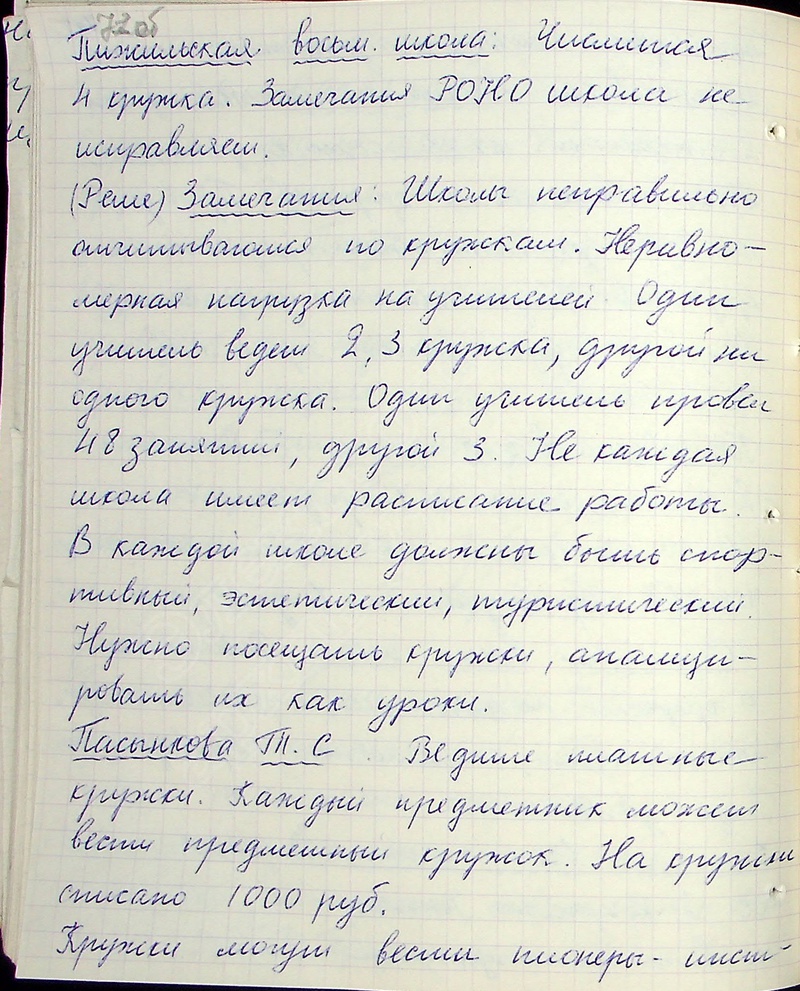 72об
Пижильская восьм. школа: Числится
4 кружка. Замечания РОНО школа не
исправляет.
(Реше) Замечания: Школы неправильно
отчитываются по кружкам. Неравно-
мерная нагрузка на учителей. Один
учитель ведет 2, 3 кружка, другой ни
одного кружка. Один учитель провел
48 занятий, другой 3. Не каждая
школа имеет расписание работы.
В каждой школе должны быть спор-
тивный, эстетический, туристический.
Нужно посещать кружки, анализи-
ровать их как уроки.
Пасынкова Т. С. Ведите платные
кружки. Каждый предметник может
вести предметный кружок. На кружки
списано 1000 руб.
Кружки могут вести пионеры-инст